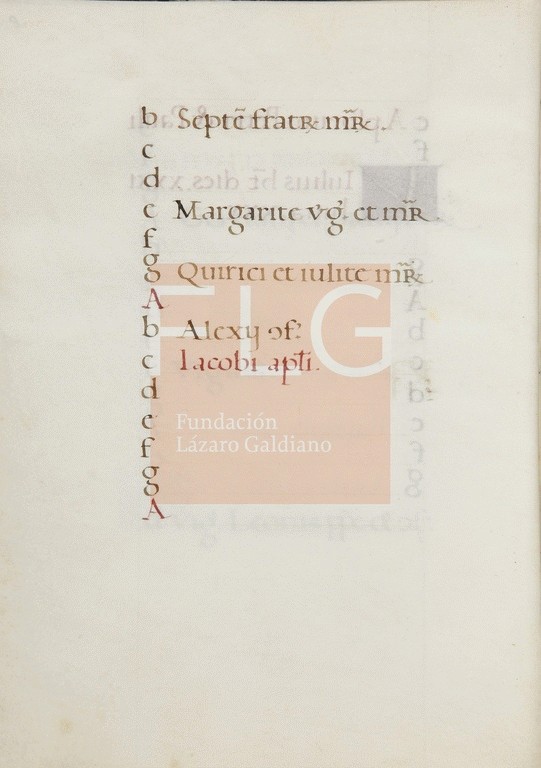 b Septē fratꝝ m̄ꝝ.
c
d
e Margarite vḡ. et m̄ꝝ.
f
g Quirici et iulite m̄ꝝ
A
b Alexij ɔf?
c Iacobi apłi.
d
e
f
g
A
FLG
Fundación
Lázaro Galdiano